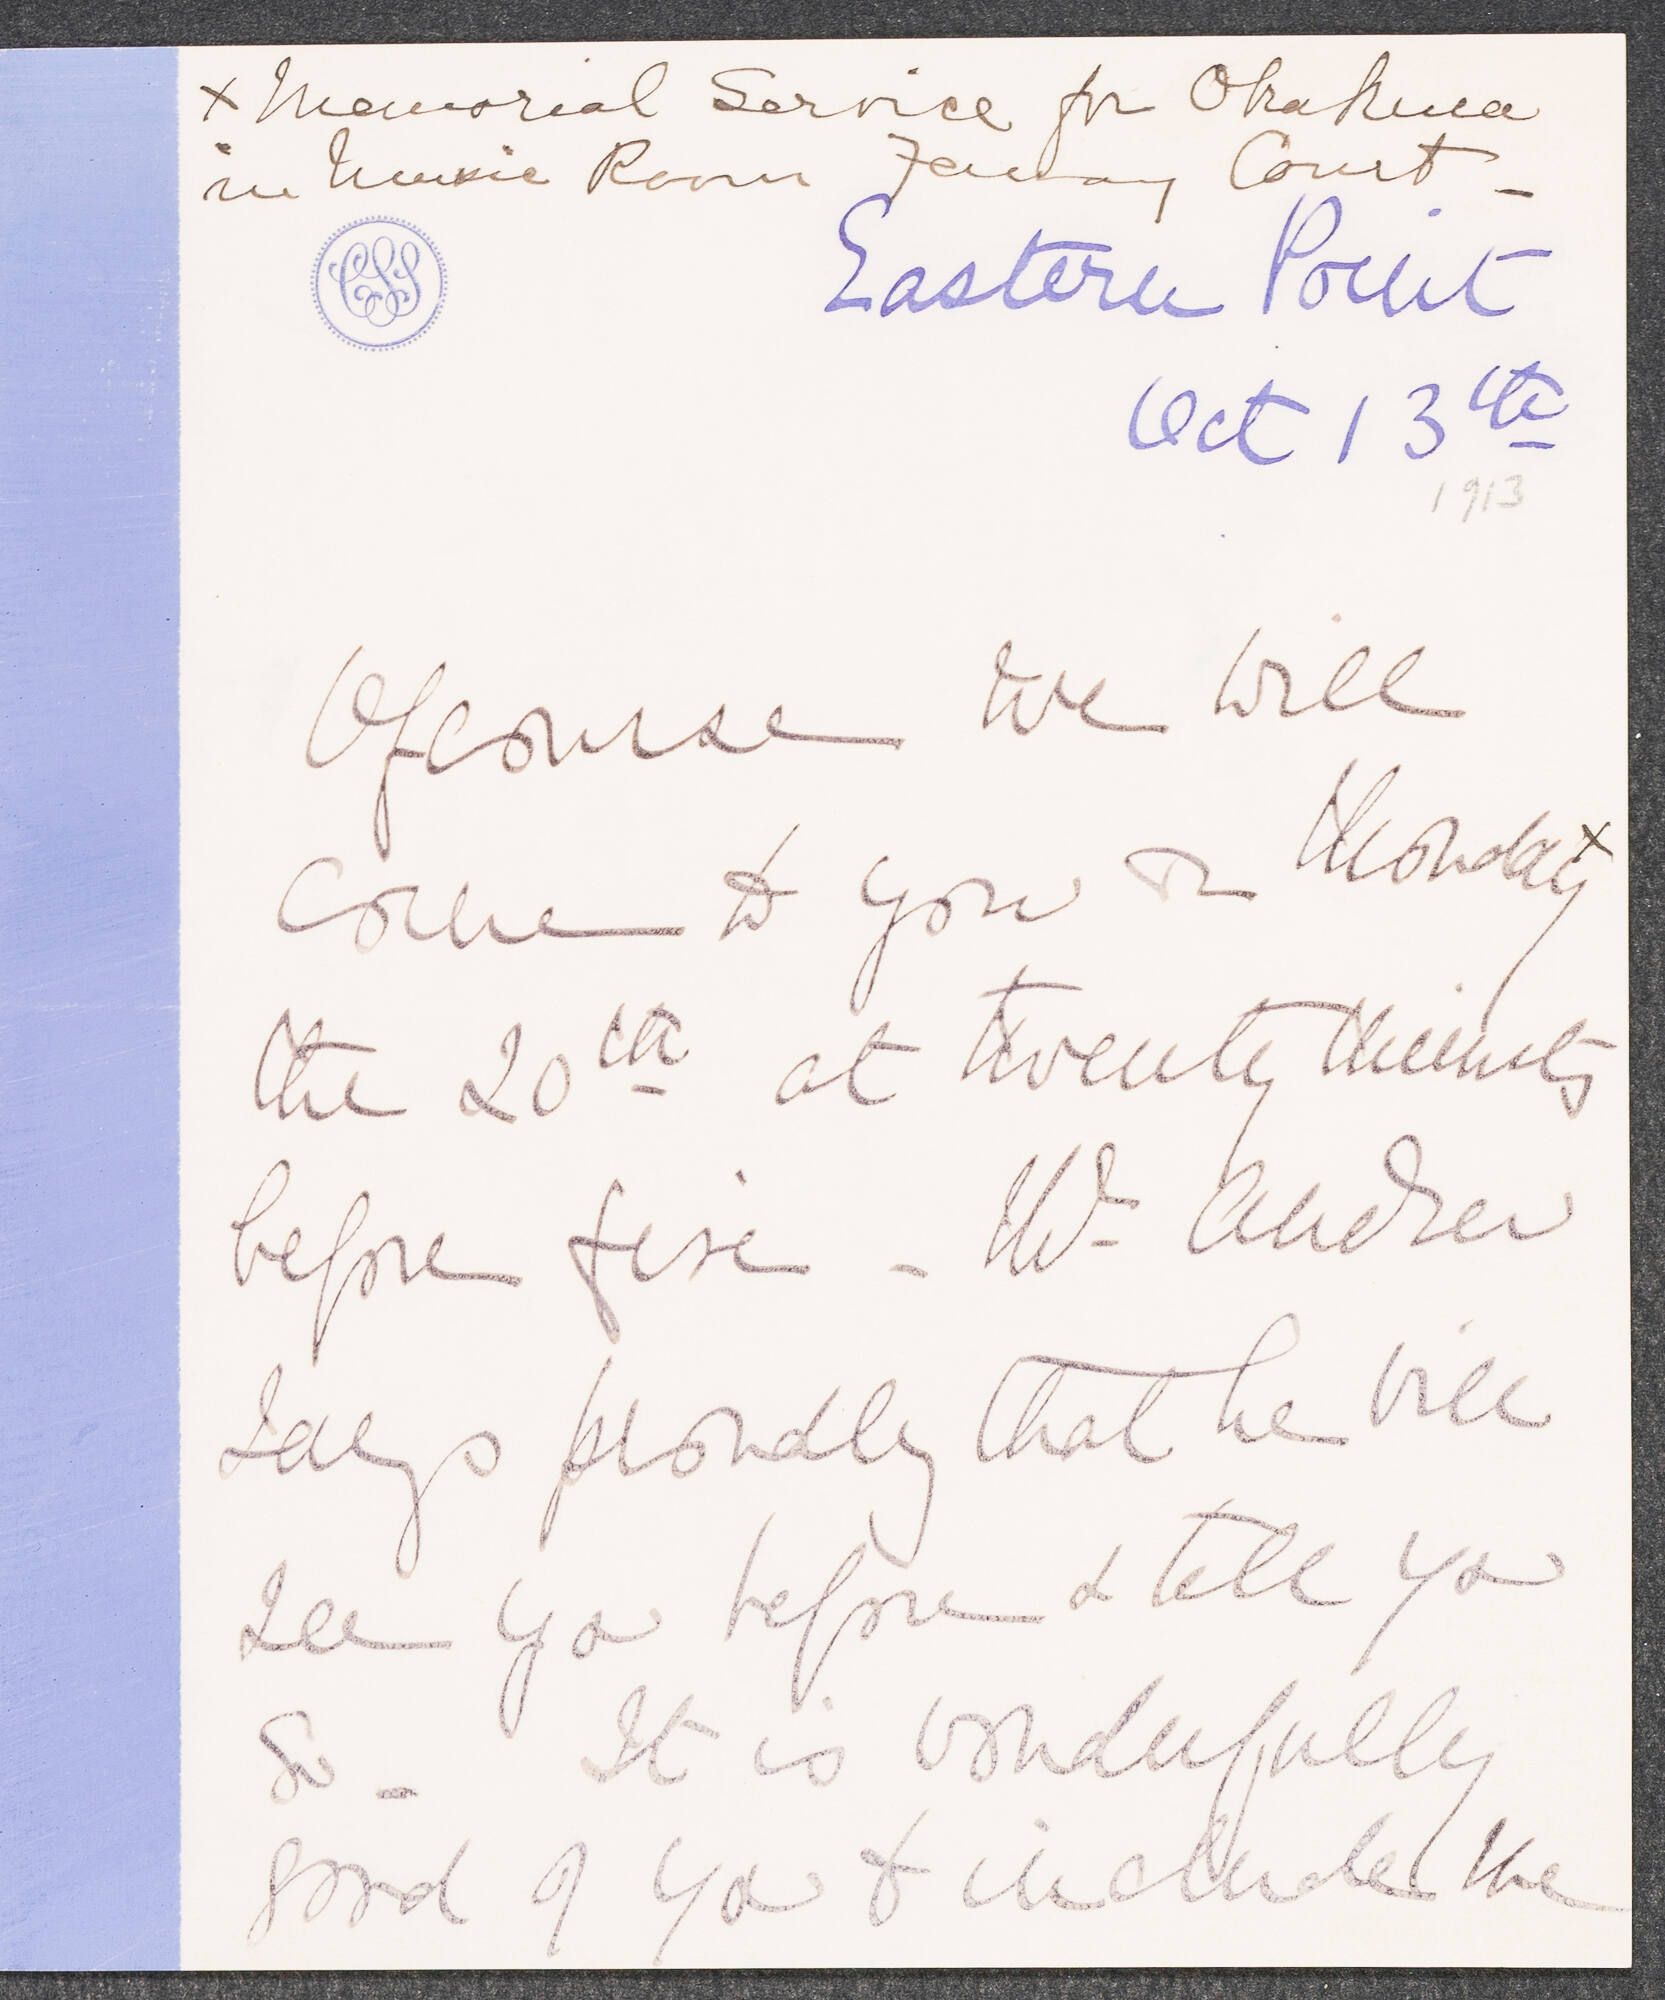 x Memorial Service for Okakura
in Music Room Fenway Court –
CSS
Eastern Point
Oct 13th
1913
Ofcourse we will
come to you on Monday x
the 20th at twenty minutes
before five – Mr Andrew
says proudly that he will
see you before & tell you
so – It is wonderfully
good of you to include the